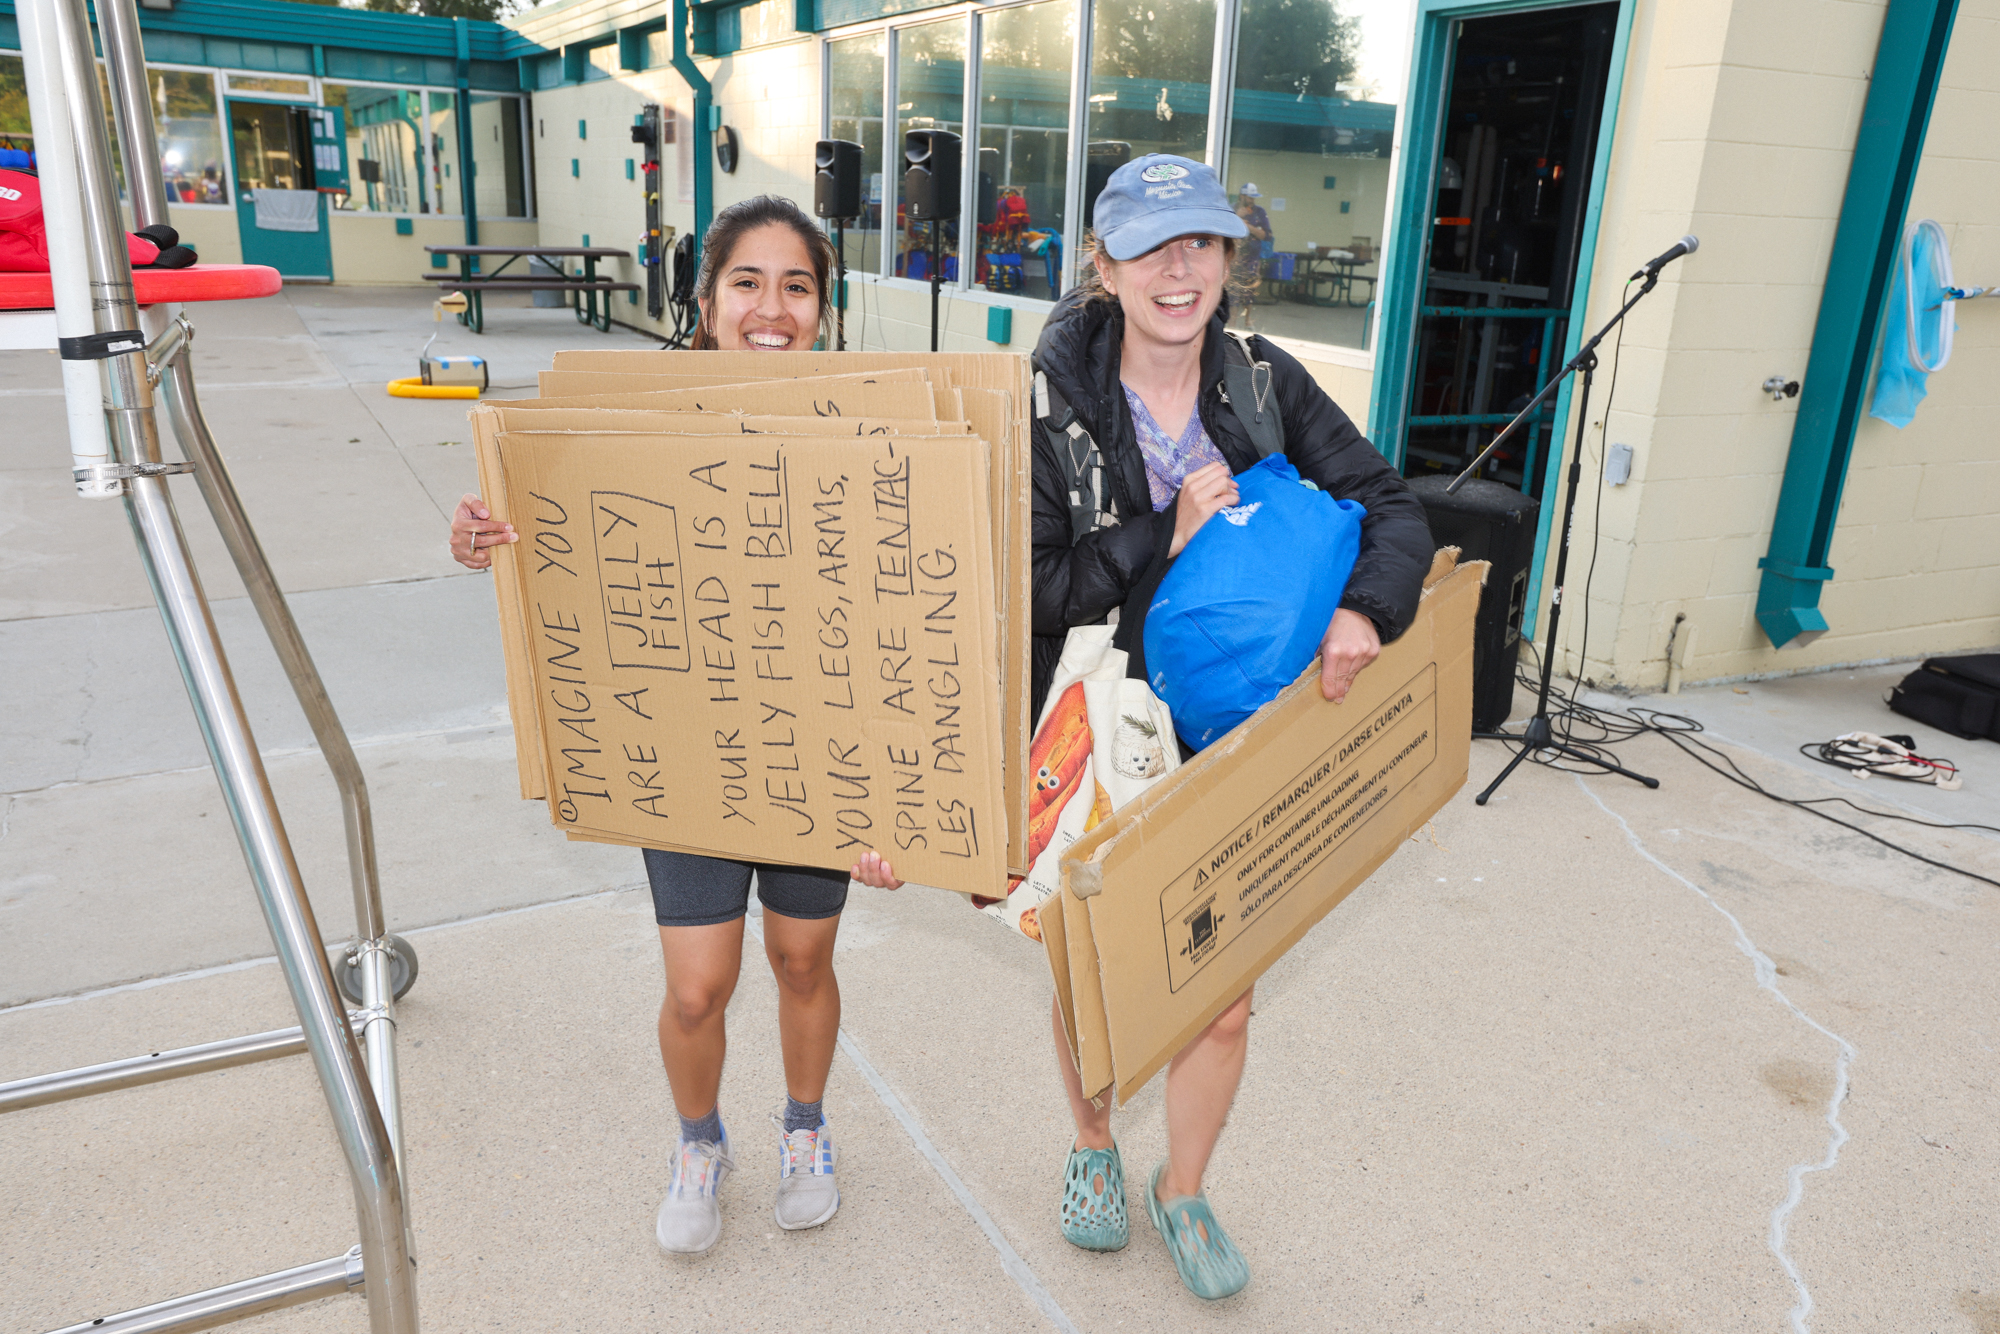 ① IMAGINE YOU
ARE A JELLY
FISH
YOUR HEAD IS A
JELLY FISH BELL.
YOUR LEGS, ARMS,
SPINE ARE TENTAC-
LES DANGLING.
NOTICE / REMARQUER / DARSE CUENTA
ONLY FOR CONTAINER UNLOADING
UNIQUEMENT POUR LE DÉCHARGEMENT DU CONTENEUR
SÓLO PARA DESCARGA DE CONTENEDORES